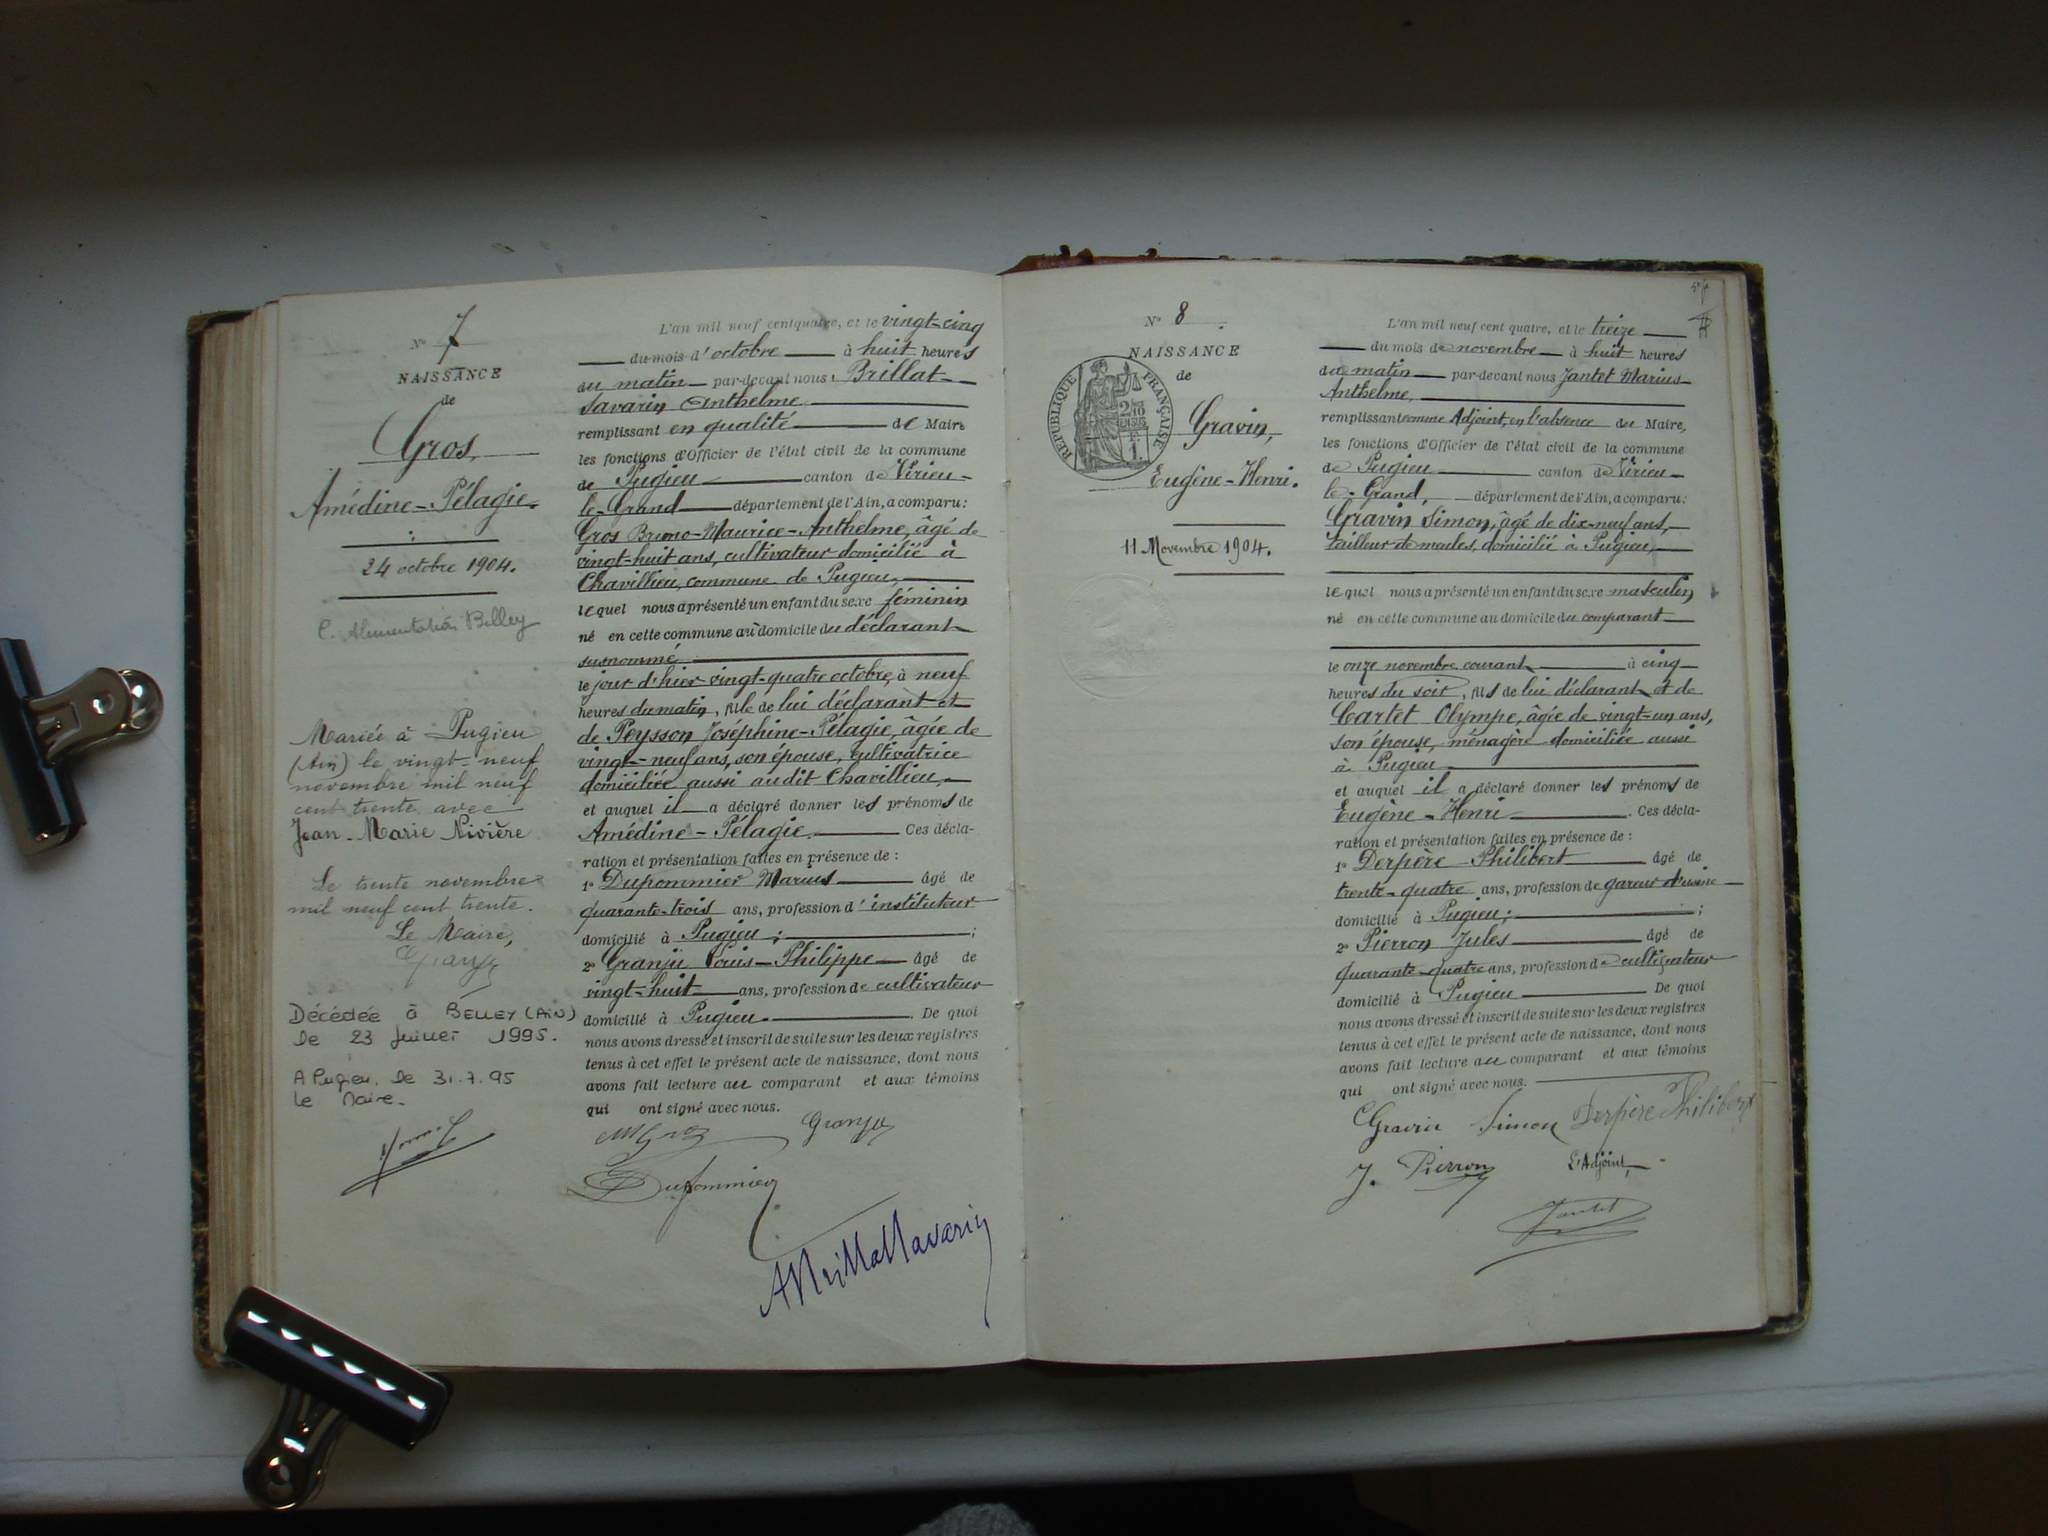 N° 7
NAISSANCE
de
Gros,
Amédine-Pélagie.
24 octobre 1904.
C. Alimentation Belley
Mariée à Pugieu
(Ain) le vingt-neuf
novembre mil neuf
cent trente avec
Jean-Marie Rivière
Le trente novembre
mil neuf cent trente.
Le Maire,
Granju
Décédée à BELLEY (AIN)
le 23 juillet 1995.
A Pugieu, le 31.7.95
Le Maire.
L'an mil neuf cent quatre, et le vingt-cinq
du mois d'octobre à huit heures
du matin par-devant nous Brillat-
Savarin Anthelme
remplissant en qualité de Maire
les fonctions d'Officier de l'état civil de la commune
de Pugieu canton de Virieu-
le-Grand département de l'Ain, a comparu:
Gros Bruno-Maurice-Anthelme, âgé de
vingt-huit ans, cultivateur domicilié à
Chavillieu, commune de Pugieu,
lequel nous a présenté un enfant du sexe féminin
né en cette commune au domicile du déclarant
susnommé
le jour d'hier vingt-quatre octobre, à neuf
heures du matin, fille de lui déclarant et
de Peysson Joséphine-Pélagie, âgée de
vingt-neuf ans, son épouse, cultivatrice
domiciliée aussi audit Chavillieu,
et auquel il a déclaré donner les prénoms de
Amédine-Pélagie. Ces décla-
ration et présentation faites en présence de :
1° Dupommier Marius âgé de
quarante-trois ans, profession d'instituteur
domicilié à Pugieu ; ;
2° Granju Louis-Philippe âgé de
vingt-huit ans, profession de cultivateur
domicilié à Pugieu. De quoi
nous avons dressé et inscrit de suite sur les deux registres
tenus à cet effet le présent acte de naissance, dont nous
avons fait lecture au comparant et aux témoins
qui ont signé avec nous.
Granju
Dupommier
ABrillatSavarin
N° 8
NAISSANCE
de
RÉPUBLIQUE FRANÇAISE
Gravin,
Eugène-Henri.
11 Novembre 1904.
L'an mil neuf cent quatre, et le treize
du mois de novembre à huit heures
du matin par-devant nous Jantet Marius-
Anthelme,
remplissant comme Adjoint, en l'absence du Maire,
les fonctions d'Officier de l'état civil de la commune
de Pugieu canton de Virieu-
le-Grand, département de l'Ain, a comparu:
Gravin Simon, âgé de dix-neuf ans,
tailleur de meules, domicilié à Pugieu,
lequel nous a présenté un enfant du sexe masculin
né en cette commune au domicile du comparant
le onze novembre courant à cinq
heures du soir, fils de lui déclarant et de
Cartet Olympe, âgée de vingt-un ans,
son épouse, ménagère domiciliée aussi
à Pugieu
et auquel il a déclaré donner les prénoms de
Eugène-Henri. Ces décla-
ration et présentation faites en présence de :
1° Derpère Philibert âgé de
trente-quatre ans, profession de gareur d'usine
domicilié à Pugieu; ;
2° Pierron Jules âgé de
quarante-quatre ans, profession de cultivateur
domicilié à Pugieu De quoi
nous avons dressé et inscrit de suite sur les deux registres
tenus à cet effet le présent acte de naissance, dont nous
avons fait lecture au comparant et aux témoins
qui ont signé avec nous.
Gravin Simon Derpère Philibert
J. Pierron L'Adjoint,
Jantet